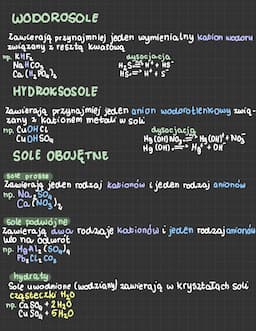 WODOROSOLE
Zawierają przynajmniej jeden wymienialny kation wodoru
związany z resztą kwasową
np. KHF₂
NaHCO₃
Ca(H₂PO₄)₂
dysocjacja
H₂S ⇌ H⁺ + HS⁻
HS⁻ ⇌ H⁺ + S⁻
HYDROKSOSOLE
Zawierają przynajmniej jeden anion wodorotlenkowy zwią-
zany z kationem metali w soli
np. CuOHCl
CuOHSO₄
dysocjacja
Mg(OH)NO₃ ⇌ Mg(OH)⁺ + NO₃⁻
Mg(OH)⁺ ⇌ Mg²⁺ + OH⁻
SOLE OBOJĘTNE
sole proste
Zawierają jeden rodzaj kationów i jeden rodzaj anionów
np. Na₂SO₄
Ca(NO₃)₂
sole podwójne
Zawierają dwa rodzaje kationów i jeden rodzaj anionów
lub na odwrót
np.
Pb₂Cl₂CO₃
hydraty
Sole uwodnione (wodziany) zawierają w kryształach soli
cząsteczki H₂O
np. CaSO₄ + 2H₂O
CuSO₄ + 5H₂O